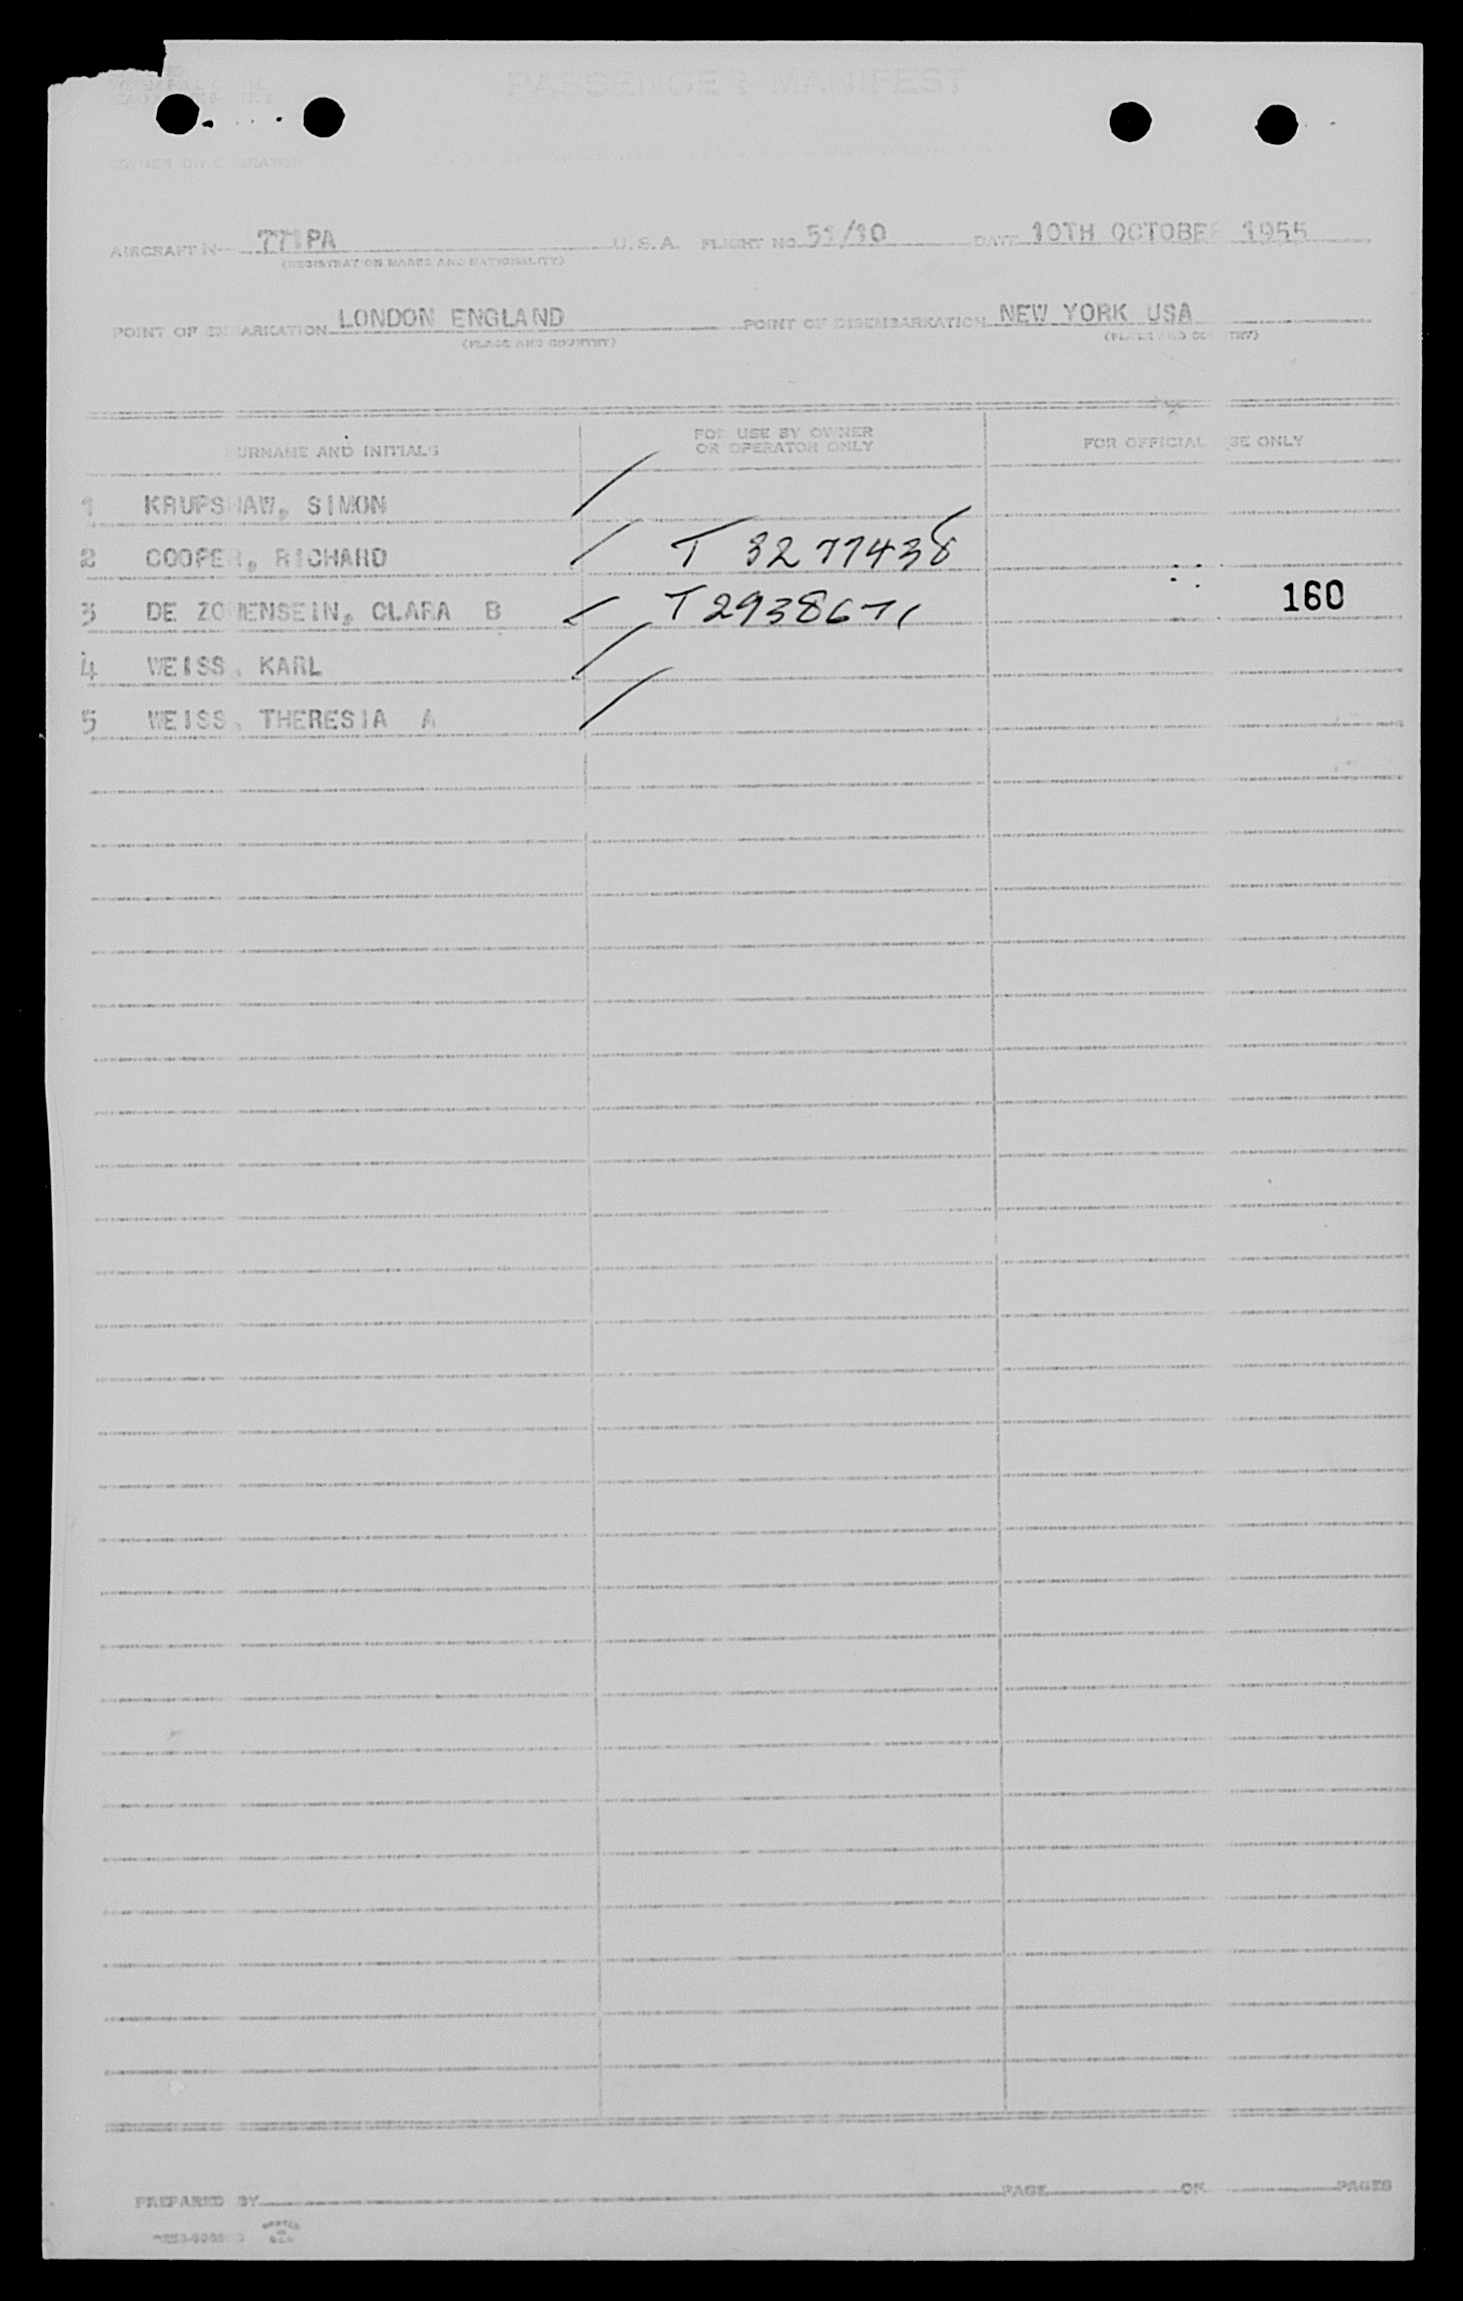 PASSENGER MANIFEST
AIRCRAFT N 771PA U.S.A. FLIGHT NO. 51/10 DATE 10TH OCTOBER 1955
(REGISTRATION MARKS AND NATIONALITY)
POINT OF EMBARKATION LONDON ENGLAND POINT OF DISEMBARKATION NEW YORK USA
(PLACE AND COUNTRY) (PLACE AND COUNTRY)
SURNAME AND INITIALS FOR USE BY OWNER OR OPERATOR ONLY FOR OFFICIAL USE ONLY
1 KRUPSHAW, SIMON
2 COOPER, RICHARD T 3277438
3 DE ZO ENSEIN, CLARA B T2938671 160
4 WEISS, KARL
5 WEISS, THERESIA A
PREPARED BY PAGE OF PAGES